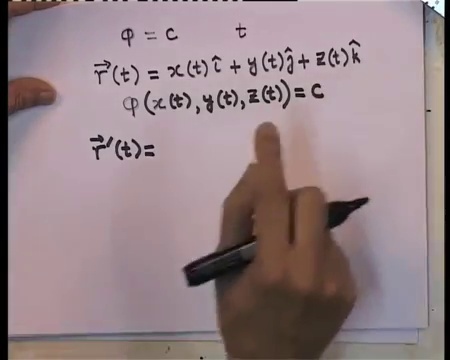 φ = c t
r⃗(t) = x(t)î + y(t)ĵ + z(t)k̂
φ(x(t), y(t), z(t)) = c
r⃗'(t) =